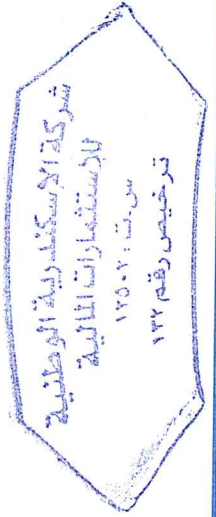 شركة الاسكندرية الوطنية
للاستثمارات المالية
س.ت : ١٢٥٠٢
ترخيص رقم ١٣٢